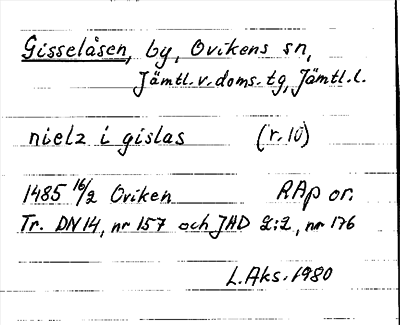 Gisselåsen, by, Ovikens sn,
Jämtl. v. doms. tg, Jämtl. l.
nielz i gislas (r. 10)
1485 16/2 Oviken RAp or.
Tr. DN 14, nr 157 och JHD 2:2, nr 176
L. Aks. 1980